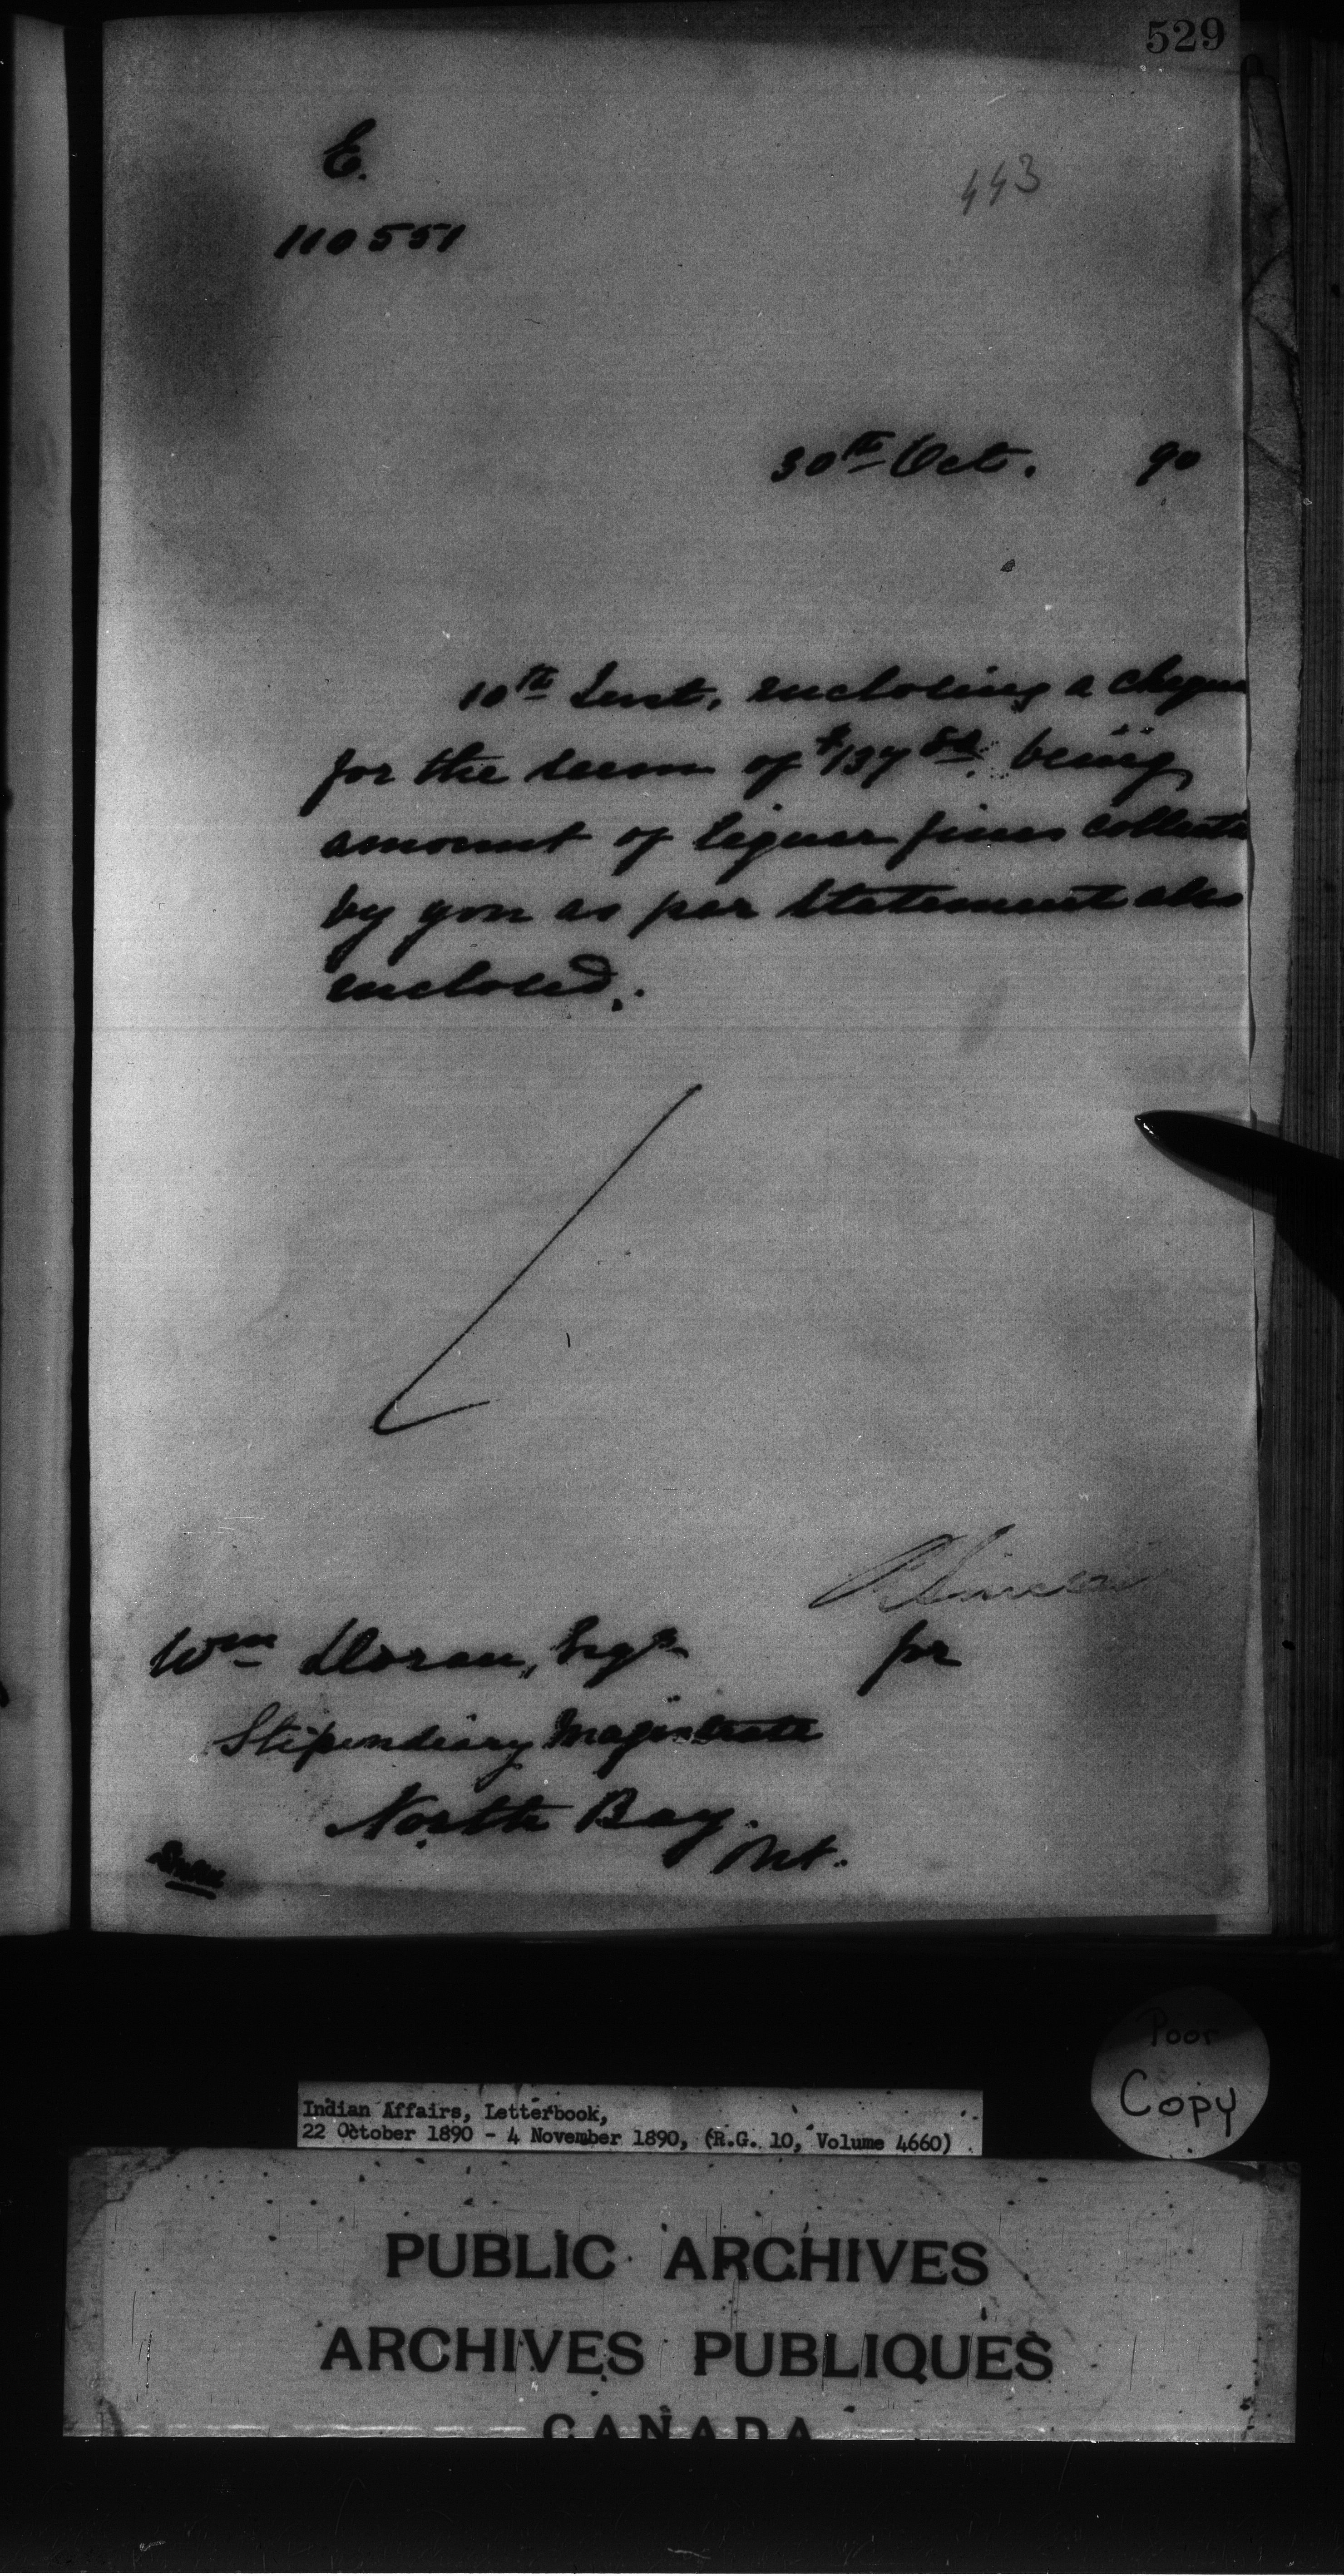 529
E.
443
110551
30th Oct. 90
10th Inst, enclosing a cheque
for the sum of $137 being
amount of liquor fines collecte
by you as per Statement also
enclosed.
R Sinclair
Wm Doran, Esqr
pr
Stipendiary Magistrate
North Bay.
Ont.
Poor
Copy
Indian Affairs, Letterbook,
22 October 1890 - 4 November 1890, (R.G. 10, Volume 4660)
PUBLIC ARCHIVES
ARCHIVES PUBLIQUES
CANADA